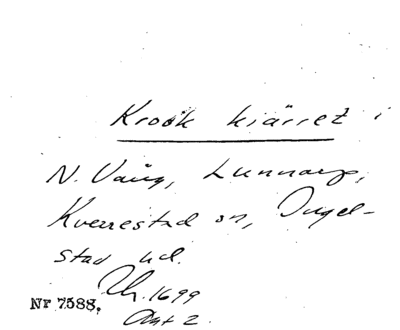 Krook kiärret i
N. Vång, Lunnarp,
Kverrestad sn, Ingel-
stad hd.
Lh. 1699
Nr 7588.
Akt 2.